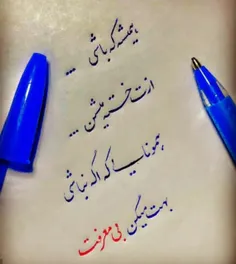 همیشه که باشی ...
ازت خسته میشن ...
همونایی که اگه نباشی
بهت میگن بی معرفت